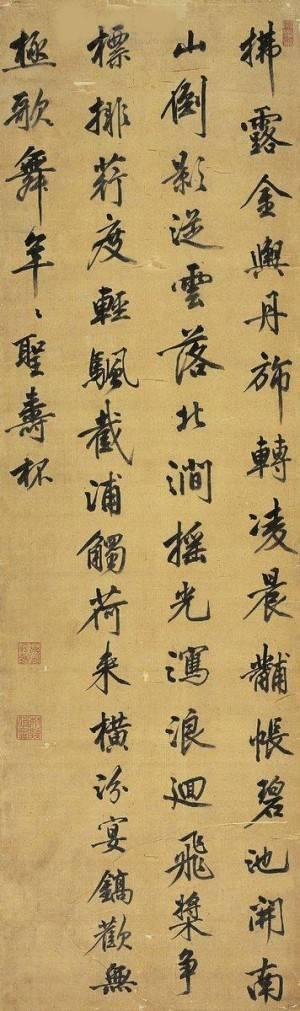 拂露金輿丹旆轉凌晨黼帳碧池開南
山倒影從雲落北澗搖光瀉浪迴飛槳争
標排荇度輕颿截浦觸荷来橫汾宴鎬歡無
極歌舞年〻聖壽杯